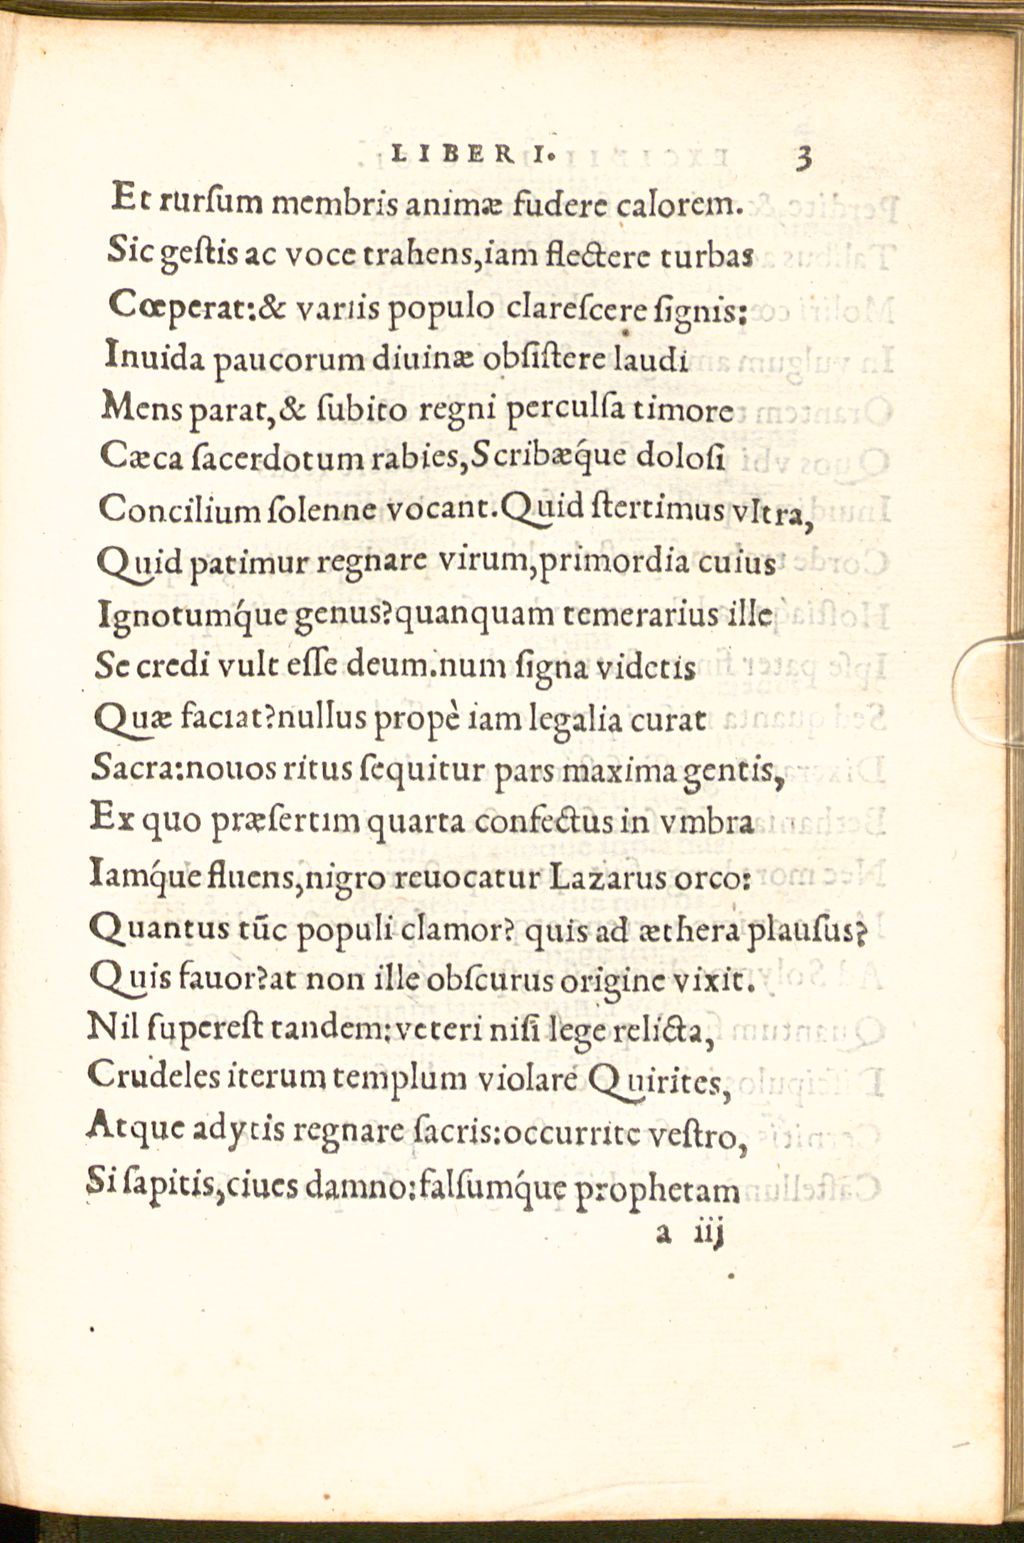 LIBER I. 3
Et rurſum membris animæ fudere calorem.
Sic geſtis ac voce trahens,iam flectere turbas
Cœperat:& variis populo clareſcere ſignis:
Inuida paucorum diuinæ obſiſtere laudi
Mens parat,& ſubito regni perculſa timore
Cæca ſacerdotum rabies,Scribæq́ue doloſi
Concilium ſolenne vocant.Quid ſtertimus vltra,
Quid patimur regnare virum,primordia cuius
Ignotumq́ue genus?quanquam temerarius ille
Se credi vult eſſe deum.num ſigna videtis
Quæ faciat?nullus propè iam legalia curat
Sacra:nouos ritus ſequitur pars maxima gentis,
Ex quo præſertim quarta confectus in vmbra
Iamq́ue fluens,nigro reuocatur Lazarus orco:
Quantus tūc populi clamor? quis ad æthera plauſus?
Quis fauor?at non ille obſcurus origine vixit.
Nil ſupereſt tandem:veteri niſi lege relicta,
Crudeles iterum templum violare Quirites,
Atque adytis regnare ſacris:occurrite veſtro,
Si ſapitis,ciues damno:falſumq́ue prophetam
a iij